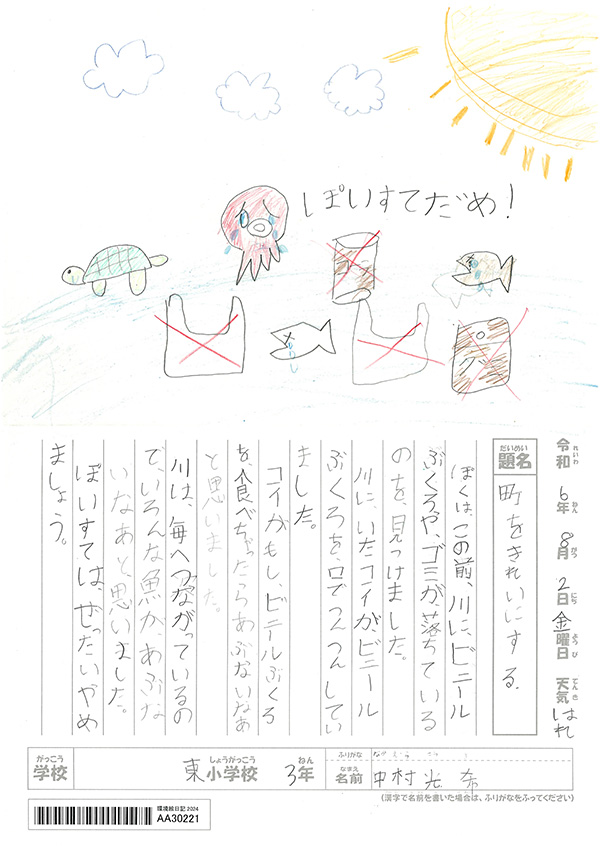 ぽいすてだめ!
令和6年8月2日金曜日 天気はれ
れいわ ねん がつ にち ようび てんき
だいめい
題名
町をきれいにする。
ぼくは、この前、川に、ビニール
ぶくろや、ゴミが、落ちている
のを、見つけました。
川に、いたコイが、ビニール
ぶくろを、口でつんつんしてい
ました。
コイがもし、ビニールぶくろ
を、食べちゃったらあぶないなぁ
と思いました。
川は、海へつながっているの
で、いろんな魚が、あぶな
いなあと、思いました。
ぽいすては、ぜったいやめ
ましょう。
がっこう
学校
東小学校 3年
しょうがっこう ねん
ふりがな
なまえ
名前
中村光希
(漢字で名前を書いた場合は、ふりがなをふってください)
環境絵日記2024
AA30221